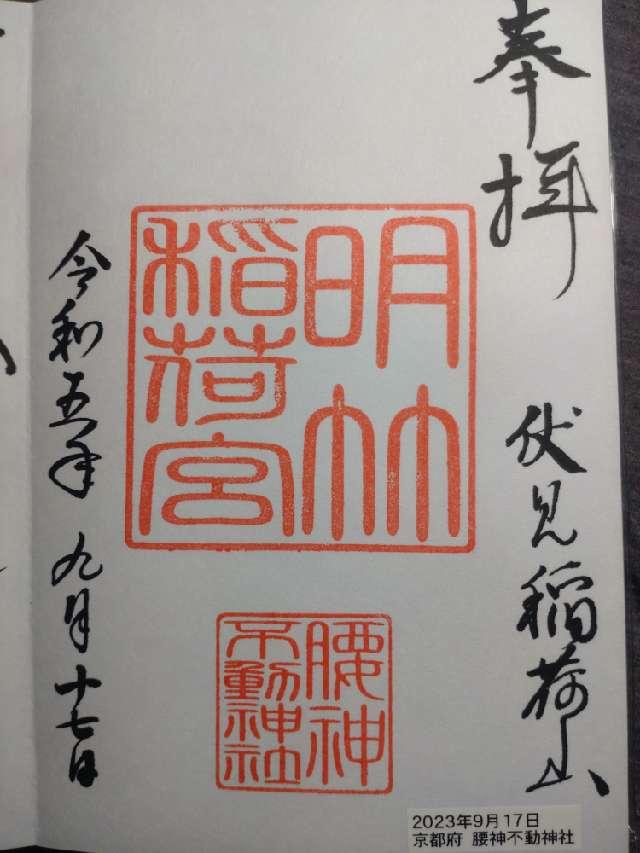 奉拝
伏見稲荷山
明竹
稲荷宮
腰神
不動神社
令和五年 九月十七日
2023年9月17日
京都府 腰神不動神社